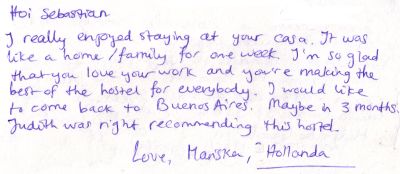 Hoi Sebastian
I really enjoyed staying at your casa. It was
like a home/family for one week. I'm so glad
that you love your work and you're making the
best of the hostel for everybody. I would like
to come back to Buenos Aires. Maybe in 3 months.
Judith was right recommending this hostel.
Love, Mariska, Hollanda